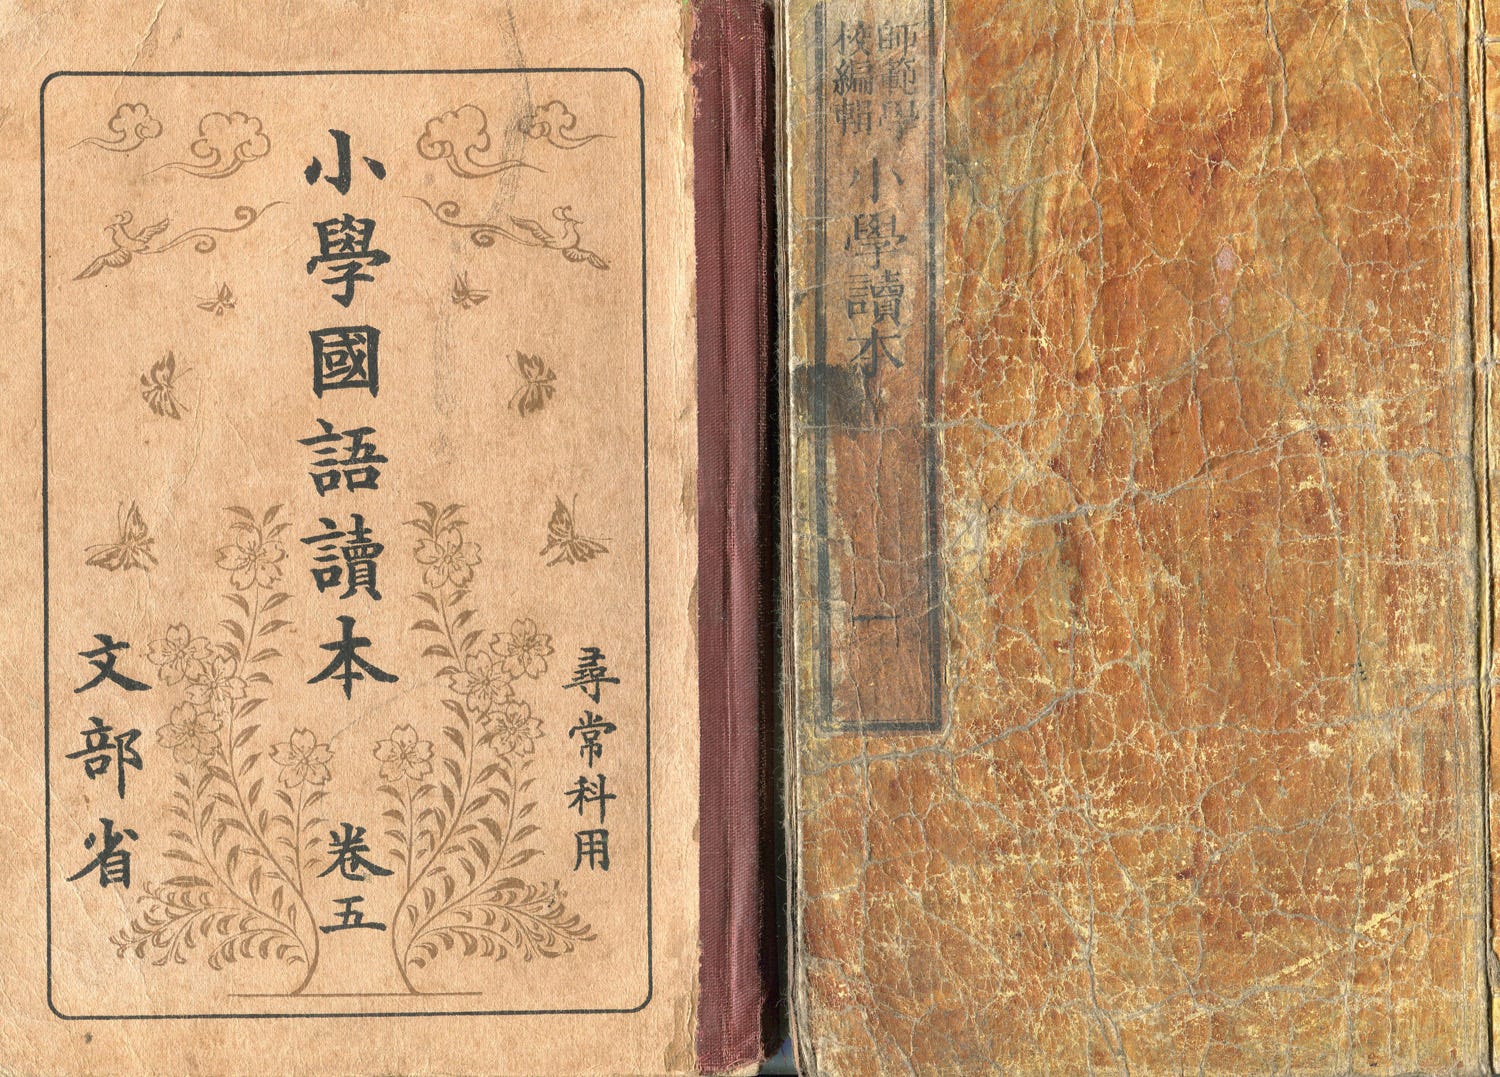 尋常科用
小學國語讀本
卷五
文部省
師範學
校編輯
小學讀本
一